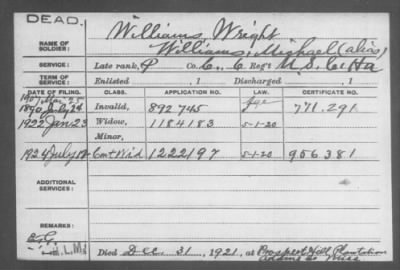 DEAD.
Williams, Wright
NAME OF SOLDIER: Williams, Michael (alias)
SERVICE: Late rank, P Co. C, 6 Reg't U.S. C. H a
TERM OF SERVICE: Enlisted , 1 Discharged , 1
DATE OF FILING. CLASS. APPLICATION NO. LAW. CERTIFICATE NO.
1907 Mar. 25 age
1890 July 24 Invalid, 892745 771.291
1922 Jan 23 Widow, 1184183 5-1-20
Minor,
1924 July Cont Wid 1222197 5-1-20 956381
ADDITIONAL SERVICES:
REMARKS:
H.L.M.
Died Dec. 31, 1921, at Prospect Hill Plantation
Adams Co Miss